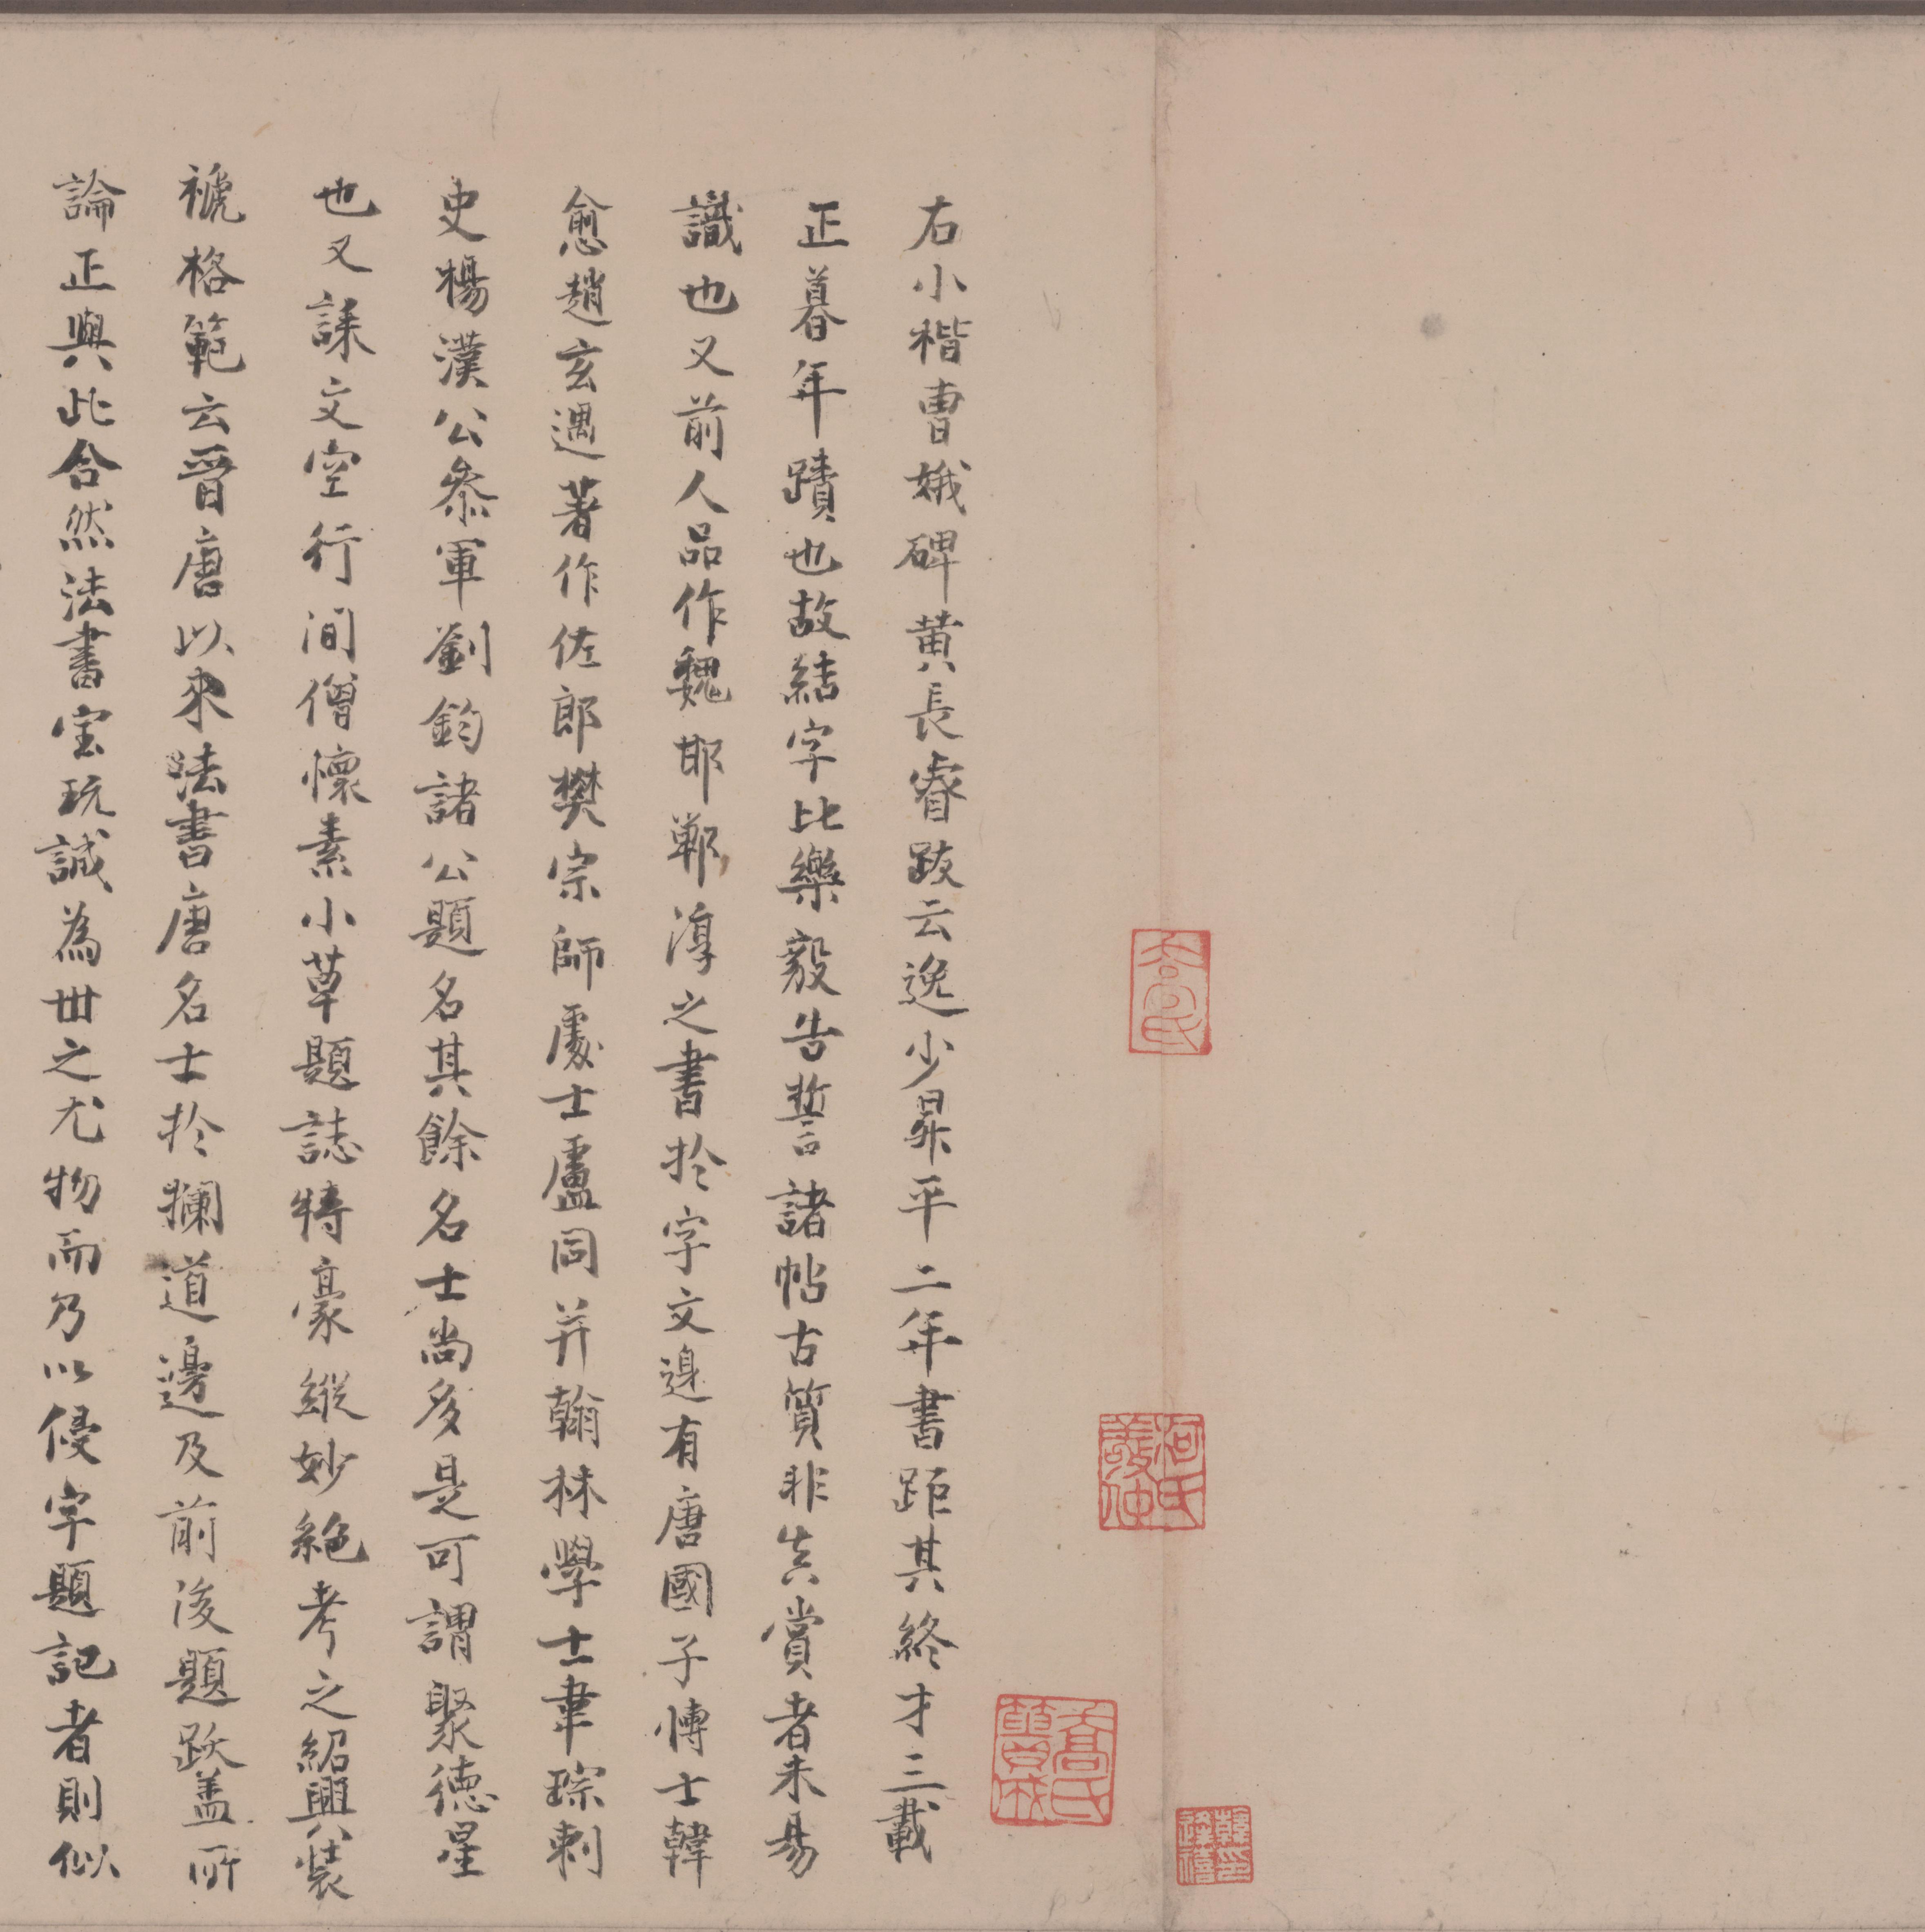 右小楷曹娥碑黄長睿跋云逸少昇平二年書距其終才三載
正暮年蹟也故結字比樂毅告誓諸帖古質非真賞者未易
識也又前人品作魏邯鄲淳之書扵字文邊有唐國子博士韓
愈趙玄遇著作佐郎樊宗師處士盧同并翰林學士韋琮刺
史楊漢公叅軍劉鈞諸公題名其餘名士尚多是可謂聚德星
也又誄文空行間僧懷素小草題誌特豪縱妙絶考之紹興裝
褫格範云晉唐以來法書唐名士扵攔道邊及前後題跋盖所
論正與此合然法書宝玩誠為世之尤物而乃以侵字題記者則似
喬氏
喬氏